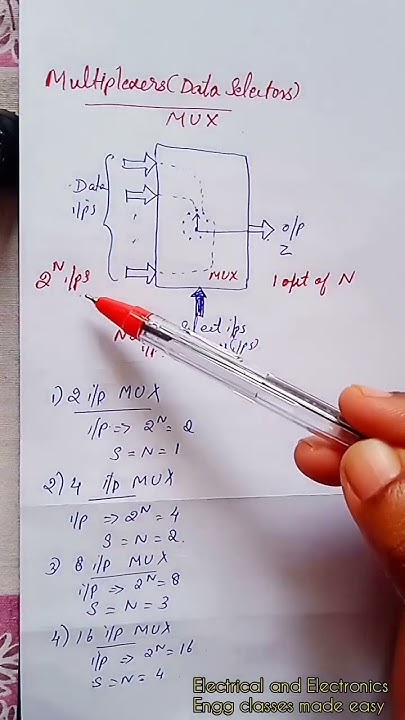 Multiplexers (Data Selectors)
MUX
Data
i/ps
o/p
Z
2^N i/ps
MUX
1 out of N
select i/ps
N
i/p
1) 2 i/p MUX
i/p => 2^N = 2
S = N = 1
2) 4 i/p MUX
i/p => 2^N = 4
S = N = 2.
3) 8 i/p MUX
i/p => 2^N = 8
S = N = 3
4) 16 i/p MUX
i/p => 2^N = 16
S = N = 4
Electrical and Electronics
Engg classes made easy